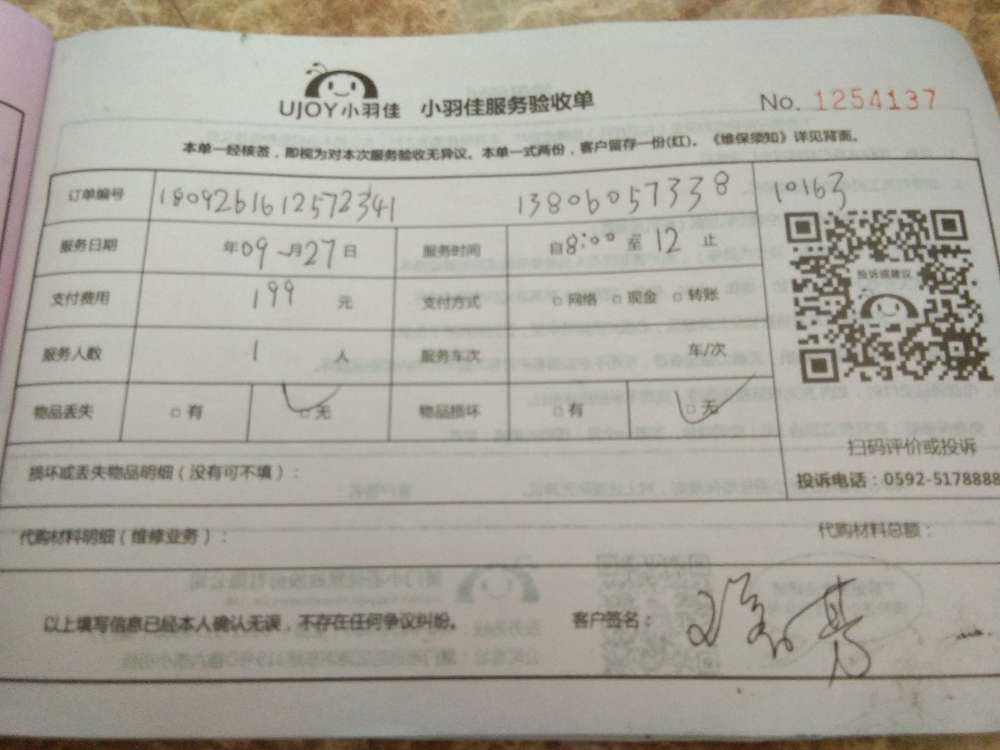 UJOY小羽佳 小羽佳服务验收单 No. 1254137
本单一经核签，即视为对本次服务验收无异议。本单一式两份，客户留存一份(红)。《维保须知》详见背面。
订单编号 1809261612572341 13806057338 10163
服务日期 年09月27日 服务时间 自8:00至12止
投诉或建议
支付费用 199 元 支付方式 □网络 □现金 □转账
服务人数 1 人 服务车次 车/次
物品丢失 □有 □无 物品损坏 □有 □无
扫码评价或投诉
损坏或丢失物品明细（没有可不填）：
投诉电话：0592-5178888
代购材料明细（维修业务）： 代购材料总额：
以上填写信息已经本人确认无误，不存在任何争议纠纷。 客户签名：